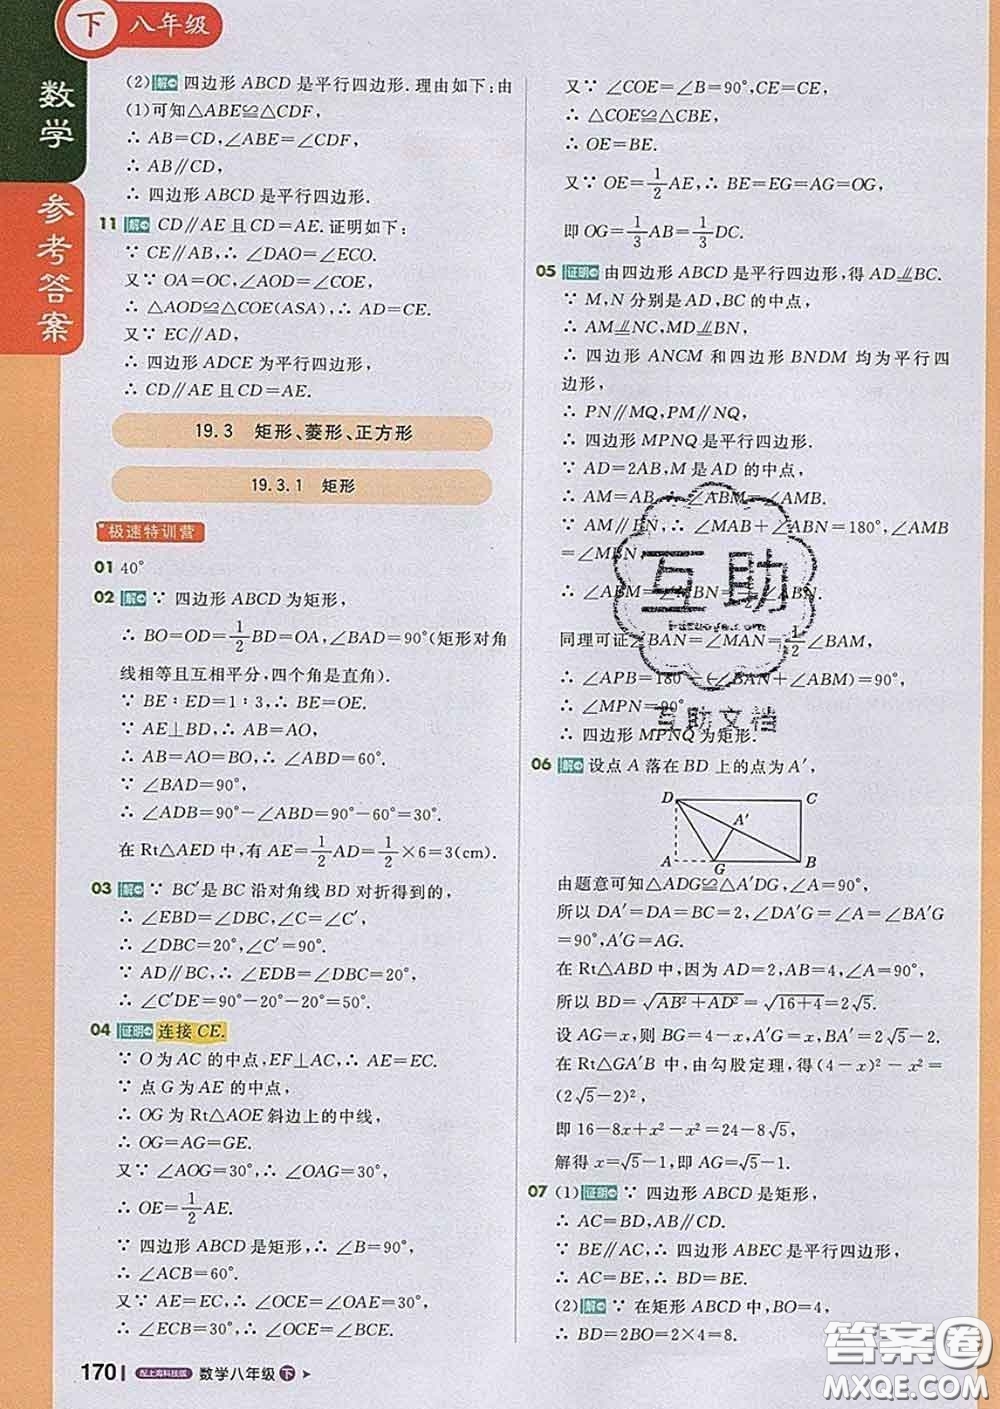 下 八年级
数学
参考答案
(2)解 四边形 ABCD 是平行四边形.理由如下:由
(1)可知△ABE≌△CDF,
∴ AB=CD,∠ABE=∠CDF,
∴ AB∥CD,
∴ 四边形 ABCD 是平行四边形.
11 解 CD∥AE 且 CD=AE.证明如下:
∵ CE∥AB,∴ ∠DAO=∠ECO.
又∵ OA=OC,∠AOD=∠COE,
∴ △AOD≌△COE(ASA),∴ AD=CE.
又∵ EC∥AD,
∴ 四边形 ADCE 为平行四边形,
∴ CD∥AE 且 CD=AE.
19.3 矩形、菱形、正方形
19.3.1 矩形
极速特训营
01 40°
02 解 ∵ 四边形 ABCD 为矩形,
∴ BO=OD=1/2BD=OA,∠BAD=90°(矩形对角
线相等且互相平分,四个角是直角).
∵ BE∶ED=1∶3,∴ BE=OE.
∵ AE⊥BD,∴ AB=AO,
∴ AB=AO=BO,∴ ∠ABD=60°.
∵ ∠BAD=90°,
∴ ∠ADB=90°-∠ABD=90°-60°=30°.
在 Rt△AED 中,有 AE=1/2AD=1/2×6=3(cm).
03 解 ∵ BC′是 BC 沿对角线 BD 对折得到的,
∴ ∠EBD=∠DBC,∠C=∠C′,
∴ ∠DBC=20°,∠C′=90°.
∵ AD∥BC,∴ ∠EDB=∠DBC=20°,
∴ ∠C′DE=90°-20°-20°=50°.
04 证明 连接 CE.
∵ O 为 AC 的中点,EF⊥AC,∴ AE=EC.
∵ 点 G 为 AE 的中点,
∴ OG 为 Rt△AOE 斜边上的中线,
∴ OG=AG=GE.
又∵ ∠AOG=30°,∴ ∠OAG=30°,
∴ OE=1/2AE.
∵ 四边形 ABCD 是矩形,∴ ∠B=90°,
∴ ∠ACB=60°.
又∵ AE=EC,∴ ∠OCE=∠OAE=30°,
∴ ∠ECB=30°,∴ ∠OCE=∠BCE.
170 配上海科技版 数学八年级 下
又∵ ∠COE=∠B=90°,CE=CE,
∴ △COE≌△CBE,
∴ OE=BE.
又∵ OE=1/2AE,∴ BE=EG=AG=OG,
即 OG=1/3AB=1/3DC.
05 证明 由四边形 ABCD 是平行四边形,得 AD⫽BC.
∵ M,N 分别是 AD,BC 的中点,
∴ AM⫽NC,MD⫽BN,
∴ 四边形 ANCM 和四边形 BNDM 均为平行四
边形,
∴ PN∥MQ,PM∥NQ,
∴ 四边形 MPNQ 是平行四边形.
∵ AD=2AB,M 是 AD 的中点,
∴ AM=AB,∴ ∠ABM=∠AMB.
∵ AM∥BN,∴ ∠MAB+∠ABN=180°,∠AMB
=∠MBN,
∴ ∠ABM=
同理可证∠BAN=∠MAN=1/2∠BAM,
∴ ∠APB=180°-(∠BAN+∠ABM)=90°,
∴ ∠MPN=90°,
∴ 四边形 MPNQ 为矩形.
06 解 设点 A 落在 BD 上的点为 A′,
D C
A′
A G B
由题意可知△ADG≌△A′DG,∠A=90°,
所以 DA′=DA=BC=2,∠DA′G=∠A=∠BA′G
=90°,A′G=AG.
在 Rt△ABD 中,因为 AD=2,AB=4,∠A=90°,
所以 BD=√(AB²+AD²)=√(16+4)=2√5.
设 AG=x,则 BG=4-x,A′G=x,BA′=2√5-2.
在 Rt△GA′B 中,由勾股定理,得(4-x)²-x²=
(2√5-2)²,
即 16-8x+x²-x²=24-8√5,
解得 x=√5-1,即 AG=√5-1.
07 (1)证明 ∵ 四边形 ABCD 是矩形,
∴ AC=BD,AB∥CD.
∵ BE∥AC,∴ 四边形 ABEC 是平行四边形,
∴ AC=BE,∴ BD=BE.
(2)解 ∵ 在矩形 ABCD 中,BO=4,
∴ BD=2BO=2×4=8.
互助
互助文档
答案圈
MXQE.COM